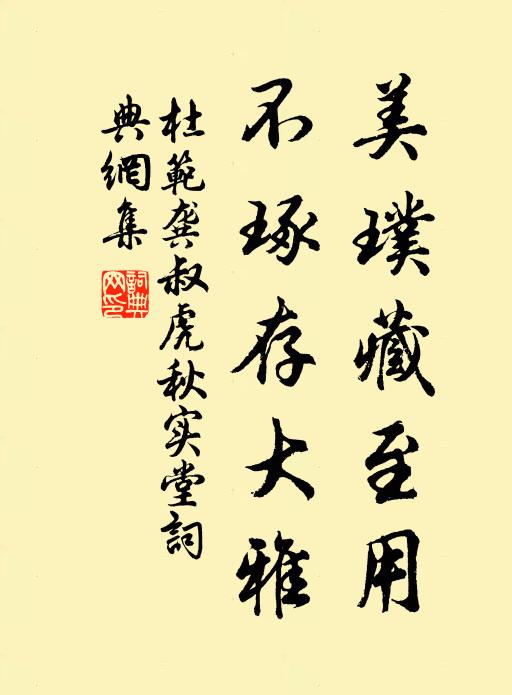 美璞藏至用
不琢存大雅
杜範龚叔虎秋实堂詞
典網集
詞典
网印